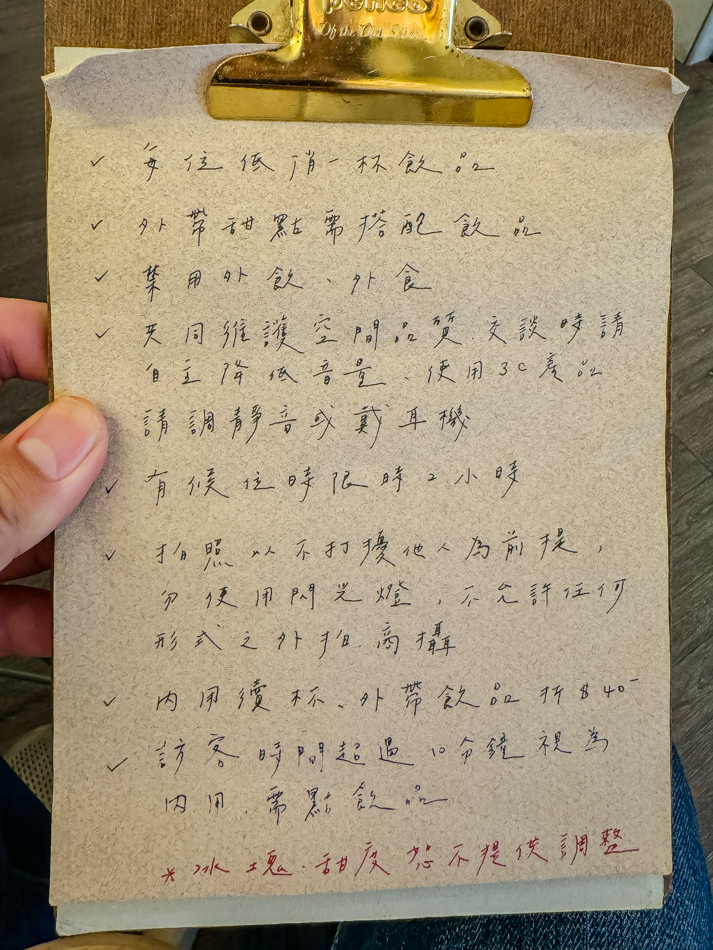 penco
Of the Old School
✓ 每位低消一杯飲品
✓ 外帶甜點需搭配飲品
✓ 禁用外飲、外食
✓ 共同維護空間品質.交談時請
自主降低音量、使用3C產品
請調靜音或戴耳機
✓ 有候位時限時2小時
✓ 拍照以不打擾他人為前提,
勿使用閃光燈,不允許任何
形式之外拍.商攝
✓ 內用續杯、外帶飲品折$40-
✓ 訪客時間超過10分鐘視為
內用.需點飲品
* 冰塊.甜度恕不提供調整